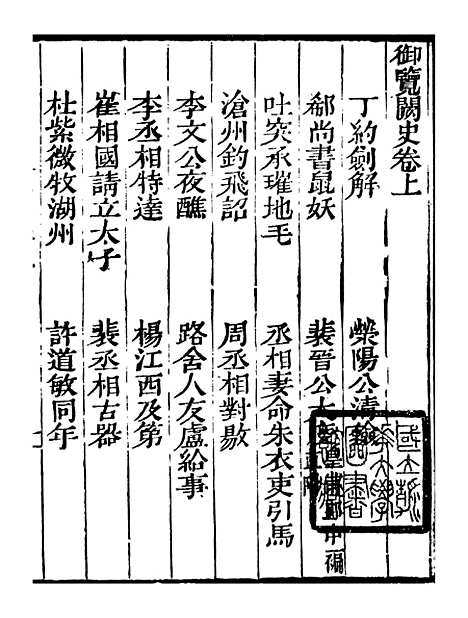 御覽闕史卷上
丁約劍解　榮陽公清
郄尚書鼠妖　裴晉公大　皇甫郎中褊
吐突承璀地毛　丞相妻命朱衣吏引馬
滄州釣飛詔　周丞相對敭
李文公夜醮　路舍人友盧給事
李丞相特達　楊江西及第
崔相國請立太子　裴丞相古器
杜紫微牧湖州　許道敏同年
國立
大學
圖書